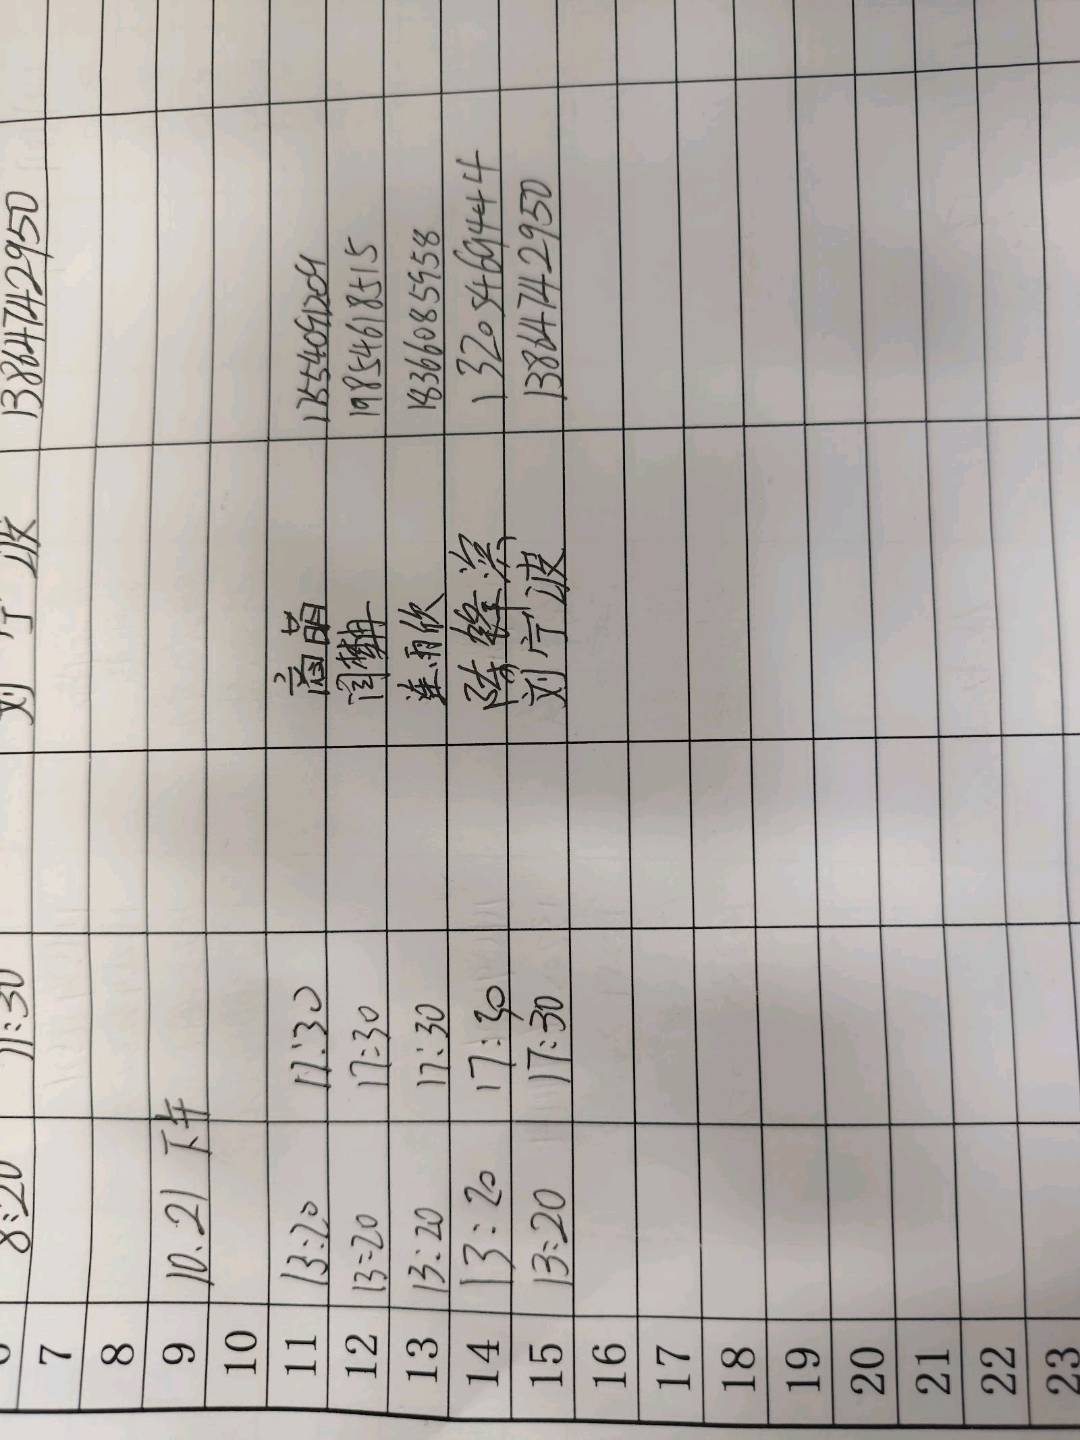 8:20 11:30 刘宁波 13864742950
7
8
9 10.21 下午
10
11 13:20 17:30 商萌
12 13:20 17:30 闫 19854618515
13 13:20 17:30 连雨欣 18366085958
14 13:20 17:30 陈 13205469444
15 13:20 17:30 刘宁波 13864742950
16
17
18
19
20
21
22
23